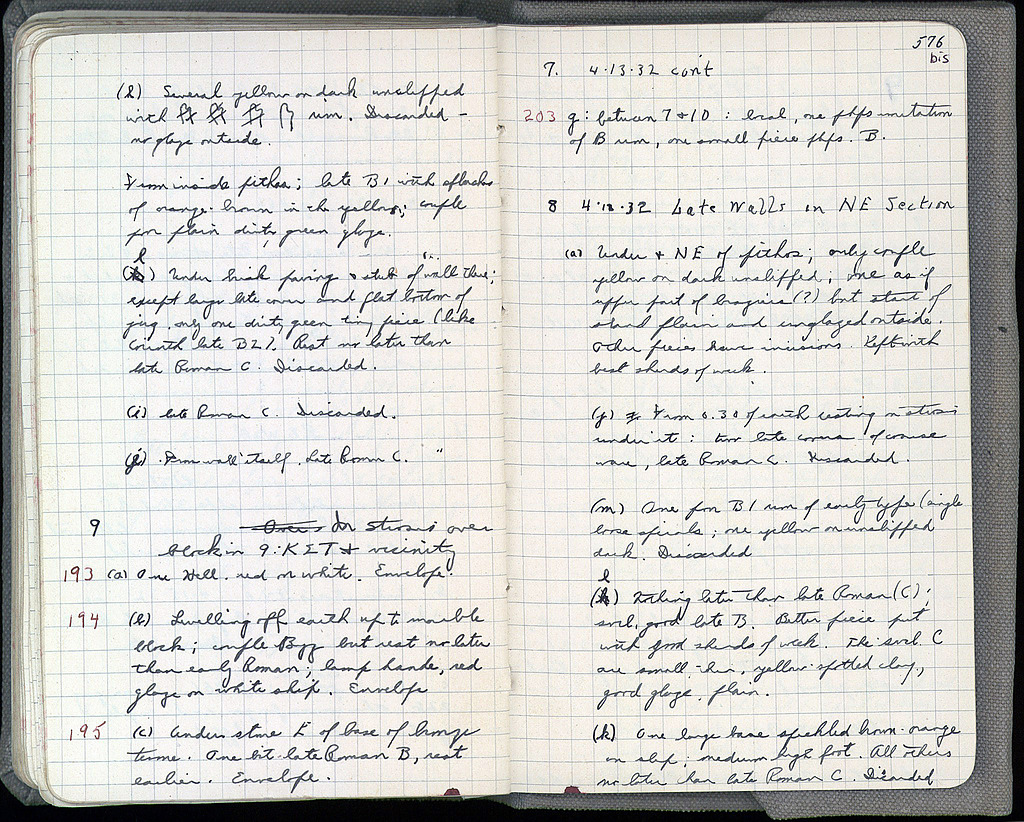 (h) Several yellow on dark unslipped
with rim. Discarded -
no glaze outside.
From inside pithos; late B1 with splashes
of orange-brown in the yellow; couple
plain dirty green glaze.
l
( ) Under brick paving & stub of wall there;
except large late cover and flat bottom of
jug, only one dirty green tiny piece (like
Corinth late B2). Rest no later than
late Roman C. Discarded.
(i) late Roman C. Discarded.
(j) From wall itself. Late Roman C. "
9 In strosis over
block in 9:KΣT & vicinity
193 (a) One Hell. red on white. Envelope.
194 (b) Levelling off earth up to marble
block; couple Byz but rest no later
than early Roman; lamp handle, red
glaze on white slip. Envelope
195 (c) Under stone E of base of bronze
. One bit late Roman B, rest
earlier. Envelope.
576
bis
7. 4·13·32 cont
203 g: between 7 & 10: local, one imitation
of B rim, one small piece B.
8 4·12·32 Late Walls in NE Section
(a) Under & NE of pithos; only couple
yellow on dark unslipped; one as if
upper part of (?) but start of
stand plain and unglazed outside.
Other pieces have incisions. Kept with
best sherds of week.
(j) From 0.30 of earth resting on strosis
under it: two late covers of coarse
ware, late Roman C. Discarded.
(m) One fine B1 rim of early type (single
loose spirals; one yellow on unslipped
dark. Discarded
l
( ) Nothing later than late Roman (C);
sevl. good late B. Better piece put
with good sherds of week. The sevl. C
are small, thin, yellow spotted clay,
good glaze, plain.
(k) One large base speckled brown-orange
on slip: medium high foot. All others
no later than late Roman C. Discarded